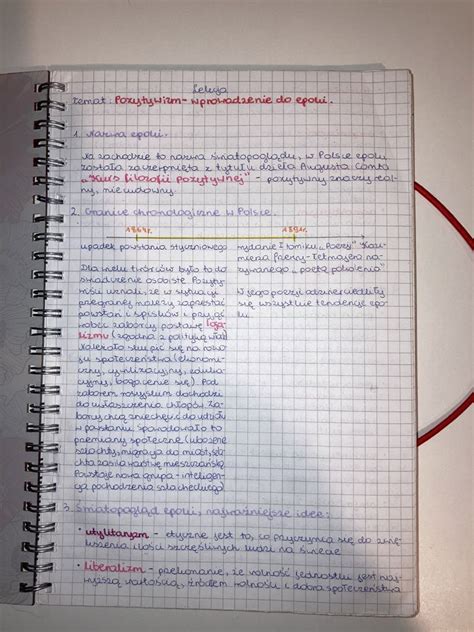 Lekcja
Temat: Pozytywizm - wprowadzenie do epoki.
1. Nazwa epoki.
Na zachodzie to nazwa światopoglądu, w Polsce epoki
została zaczerpnięta z tytułu dzieła Augusta Comta
"Kurs filozofii pozytywnej" - pozytywny znaczy real-
ny, nieudowny.
2. Granice chronologiczne w Polsce.
1864r. 1891r.
upadek powstania styczniowego
Dla wielu twórców było to do
świadczenie osobiste. Pozyty-
wiści uznali, że w sytuacji
przegranej należy zaprzestać
powstań i spisków i przyjąć
wobec zaborcy postawę loja-
lizmu (zgodną z polityką władz)
Należało skupić się na rozwo
ju społeczeństwa (ekonomi-
czny, cywilizacyjny, eduka-
cyjny, bogacenie się). Pod
zaborem rosyjskim dochodzi
do uwłaszczenia chłopów. Za
borcy chcą zniechęcić do udziału
w powstaniu. Spowodowało to
przemiany społeczne (ubożenie
szlachty, migracja do miast, szla
chta zasila warstwę mieszczańską
Powstaje nowa grupa - inteligen
cja pochodzenia szlacheckiego)
wydanie I tomiku "Poezji" Kazi-
mierza Przerwy-Tetmajera na-
zywanego "poetą pokolenia"
W jego poezji odzwierciedliły
się wszystkie tendencje epo
ki.
3. Światopogląd epoki, najważniejsze idee:
• utylitaryzm - etyczne jest to, co przyczynia się do zwię-
kszenia ilości szczęśliwych ludzi na świecie
• liberalizm - przekonanie, że wolność jednostki jest naj-
wyższą wartością, źródłem wolności i dobra społeczeństwa